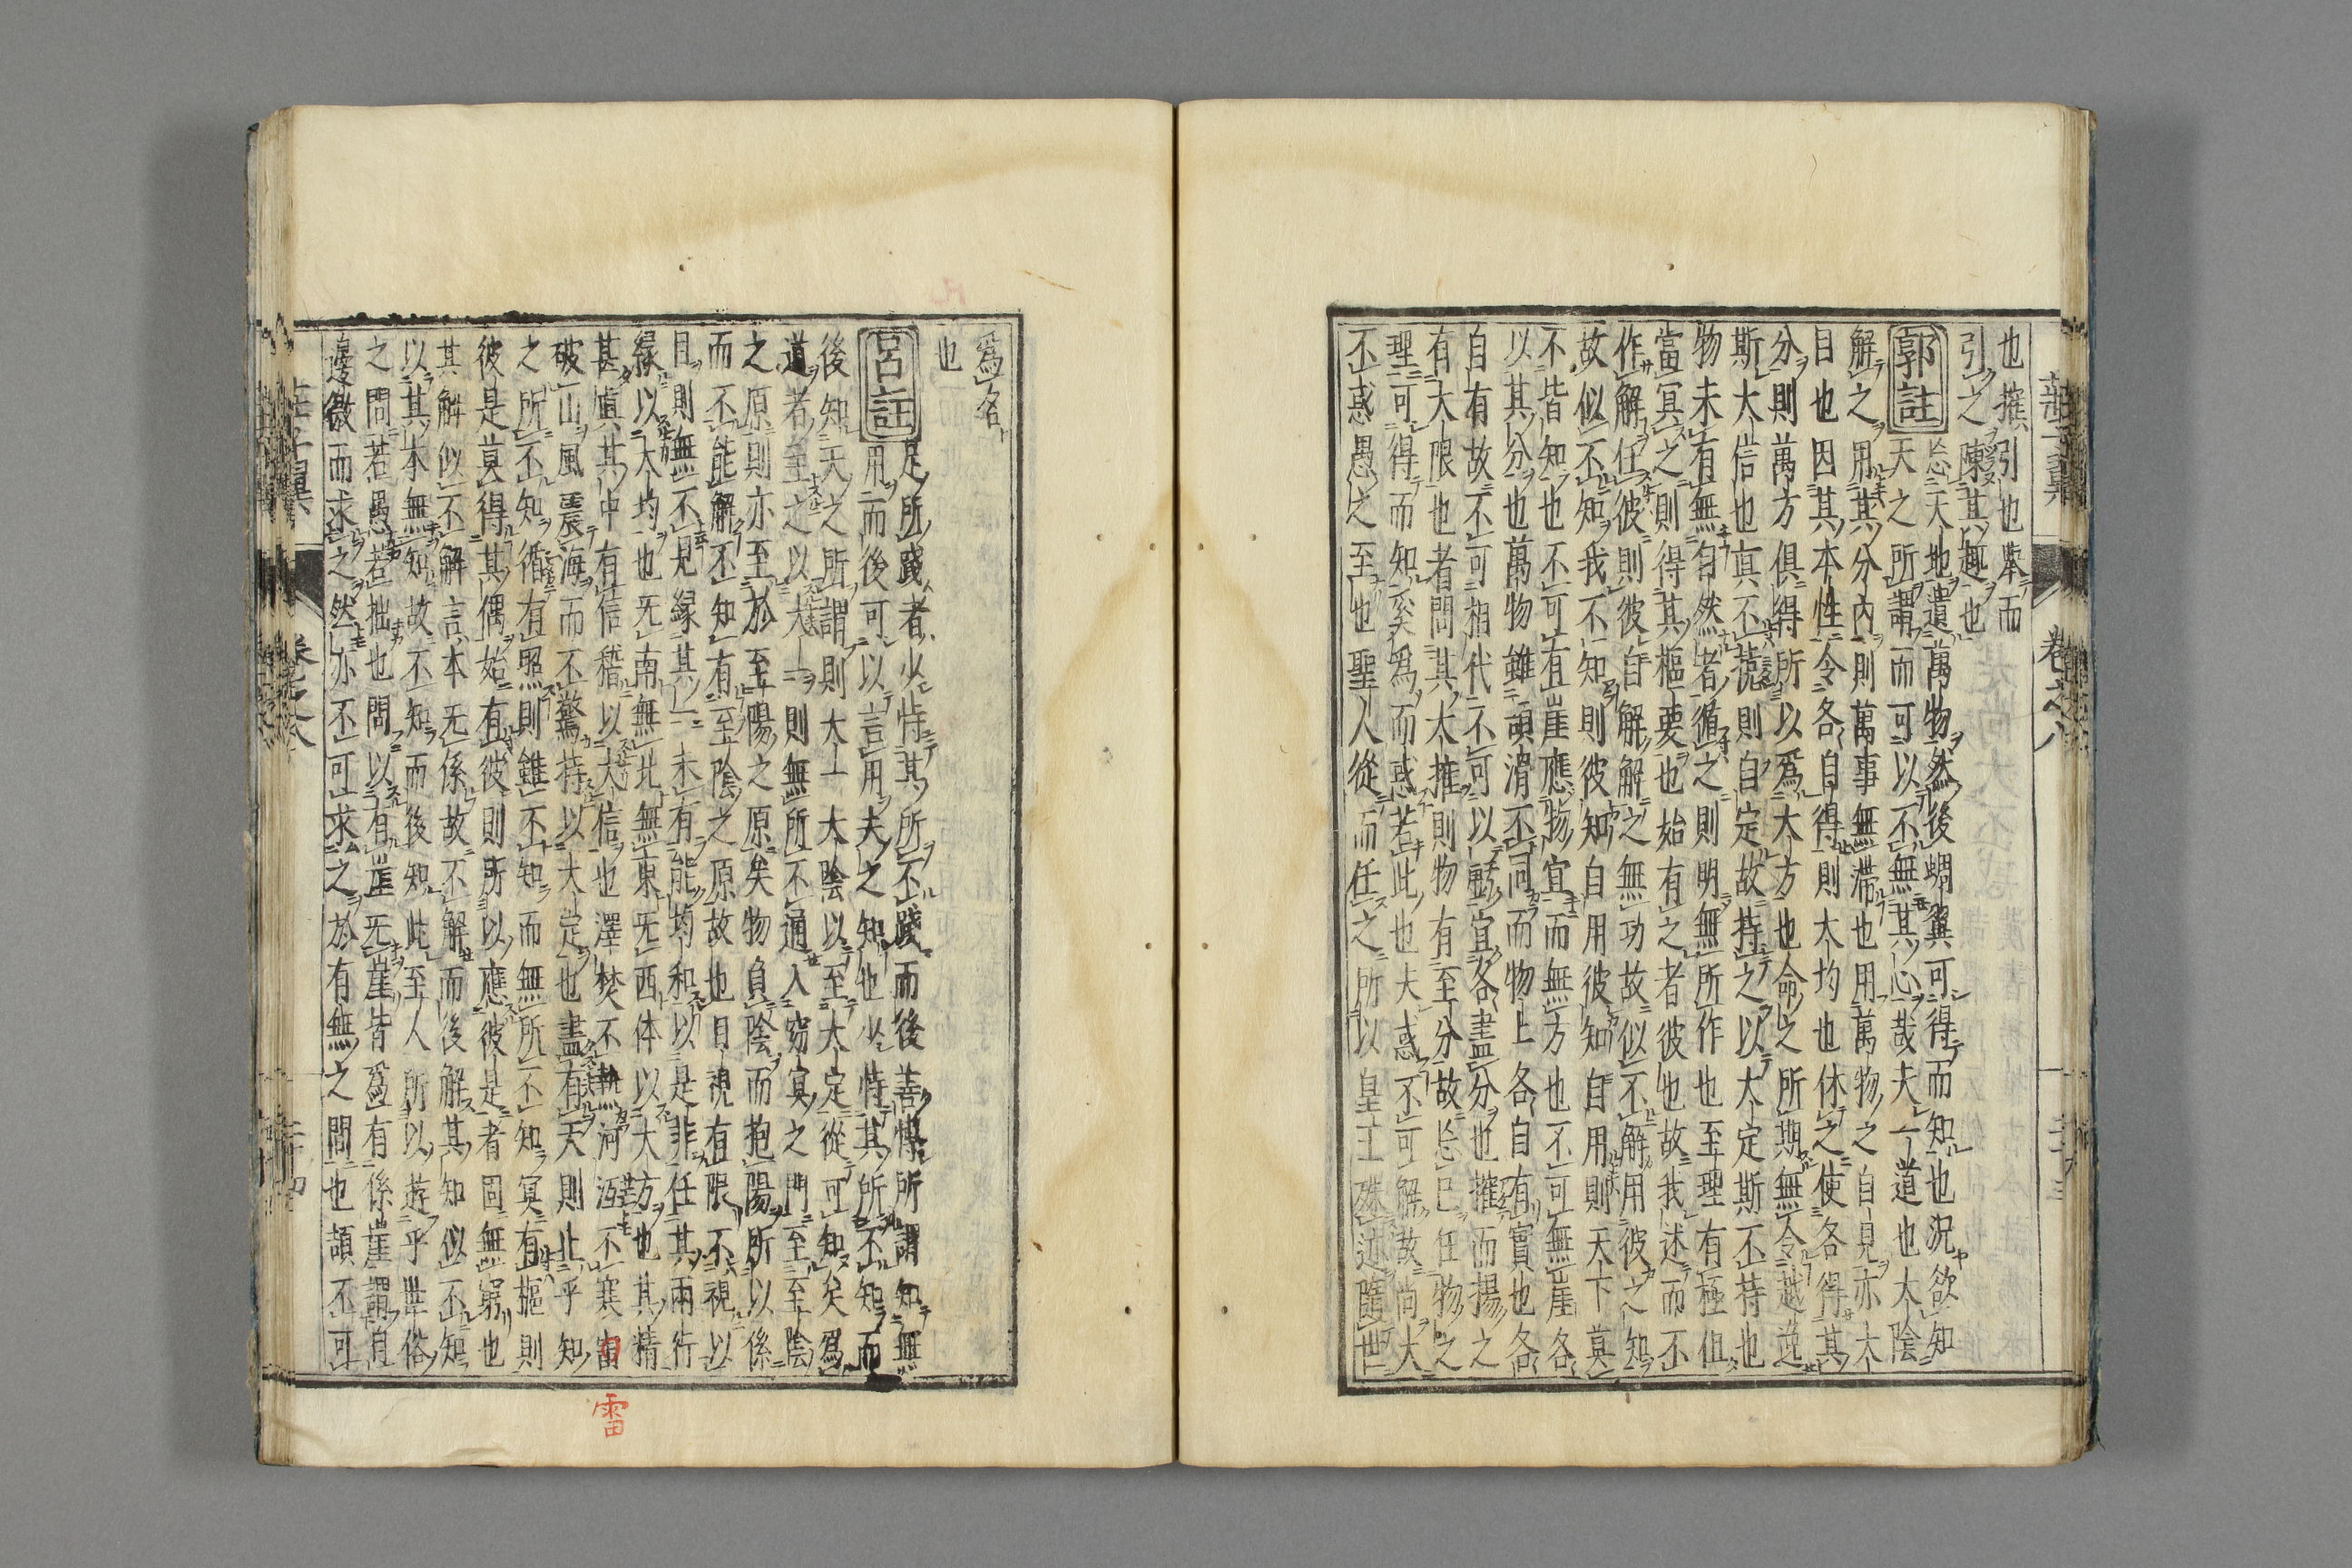 莊子翼
卷之八
也搉引也舉而
引之陳其趣也
郭註
忘天地遺萬物然後蜩翼可得而知也況欲知
天之所謂而可以不無其心哉夫一道也大陰
解之用其分內則萬事無滯也用萬物之自見亦大
目也因其本性令各自得則大均也休之使各得其
分則萬方俱得所以為大方也命之所期無令越逸
斯大信也真不撓則自定故持之以大定斯不持也
物未有無自然者循之則明無所作也至理有極但
當冥之則得其樞要也始有之者彼也故我述而不
作解任彼則彼自解解之無功故似不解用彼之知
故似不知我不知則彼知自用彼知自用則天下莫
不皆知也不可有崖應物宜而無方也不可無崖各
以其分也萬物雖頡滑不同而物上各自有實也各
自有故不可相代不可以虧宜各盡分也搉而揚之
有大限也者問其大搉則物有至分故忘已任物之
理可得而知奚為而惑若此也夫惑不可解故尚大
不惑愚之至也聖人從而任之所以皇王殊迹隨世
為名
也
呂註
足所踐者必恃其所不踐而後善博所謂知無
用而後可以言用夫之知也必恃其所不知而
後知天之所謂則大一大陰以至大定從可知矣為
道者至之以大一則無所不通入窈冥之門至至陰
之原則亦至於至陽之原矣物負陰而抱陽所以係
而不能解不知有至陰之原故也目視有限不視以
目則無不見緣其一未有能均和以是非任其兩行
緣以大均也无南無北無東无西体以大方也其精
甚真其中有信稽以大信也澤焚不熱河沍不寒
破山風震海而不驚持以大定也盡有天則止乎知
之所不知循有照則雖不知而無所不知冥有樞則
彼是莫得其偶始有彼則所以應彼是者固無窮也
其解似不解言本无係故不解而後解其知似不知
以其本無知故不知而後知此至人所以遊乎世俗
之問若愚若拙也問以有崖无崖皆為有係崖謂自
邊徼而求之然亦不可求之於有無之問也頡不可
雷